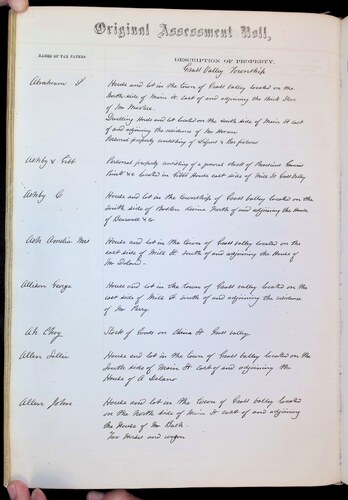 Original Assessment Roll,
NAMES OF TAX PAYERS
DESCRIPTION OF PROPERTY.
Grass Valley Township
Abraham P
House and lot in the town of Grass Valley located on the
North side of Main St East of and adjoining the
of Mr
Dwelling House and lot located on the south side of Main St East
of and adjoining the residence of Mr
Personal property consisting of Liquors & Bar fixtures
Ashby &
Personal property consisting of a general stock of
& c located in House east side of Mill St Grass Valley
Ashby C
House and lot in the township of Grass Valley located on the
south side of Boston Ravine North of and adjoining the House
of & Co
Ash Amelia Mrs
House and lot in the town of Grass Valley located on the
east side of Mill St South of and adjoining the House of
Mr
George
House and lot in the Town of Grass Valley located on the
east side of Mill St South of and adjoining the residence
of Mr Perry
Ah Choy
Stock of Goods on China St Grass Valley
Allen
House and lot in the town of Grass Valley located on the
South side of Main St East of and adjoining the
House of A Delano
Allen John
House and lot in the town of Grass Valley located
on the North side of Main St East of and adjoining
the House of Mr
Two Horses and wagon